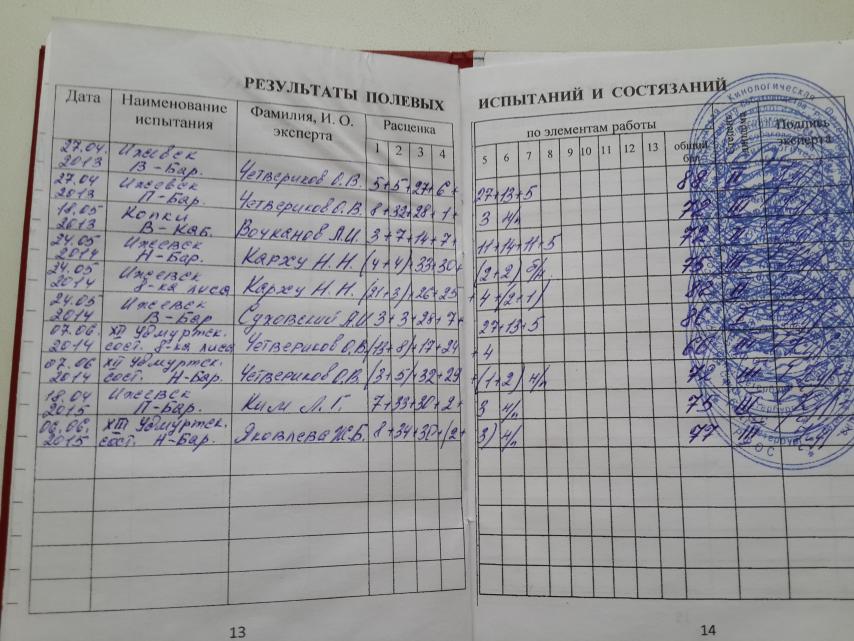 РЕЗУЛЬТАТЫ ПОЛЕВЫХ ИСПЫТАНИЙ И СОСТЯЗАНИЙ
Дата Наименование испытания Фамилия, И. О. эксперта Расценка по элементам работы общий бал. степень диплома Подпись эксперта
1 2 3 4 5 6 7 8 9 10 11 12 13
27.04. 2013 Ижевск В-Бар. Четвериков О.В. 5+5+27+6+ 27+13+5 88 II
27.04 2013 Ижевск П-Бар. Четвериков О.В. 8+32+28+1+ 3 н/п 72 III
18.05 2013 Копки В-Каб. Вочканов Л.И. 3+7+14+7+ 11+14+11+5 72
24.05 2014 Ижевск Н-Бар. Каржу Н.Н. (4+4)+33+30+ (2+2) б/п. 75 III
24.05 2014 Ижевск 8-ка лиса Каржу Н.Н. (21+3)+26+25 +4+(2+1) 82
24.05 2014 Ижевск В-Бар Суховский 3+3+28+7+ 27+13+5 86
07.06. 2014 XII Удмуртск. сост. 8-ка лиса Четвериков О.В. (13+8)+17+24 +4 66 III
07.06 2014 XII Удмуртск. сост. Н-Бар. Четвериков О.В. (3+5)+32+29 +(1+2) н/п 72 III
18.04 2015 Ижевск П-Бар. Ким Л.Г. 7+33+30+2+ 3 н/п 75 III
06.06. 2015 XIII Удмуртск. сост. Н-Бар. Яковлева Ж.Б. 8+34+30+(2+ 3) н/п 77 III
13 14